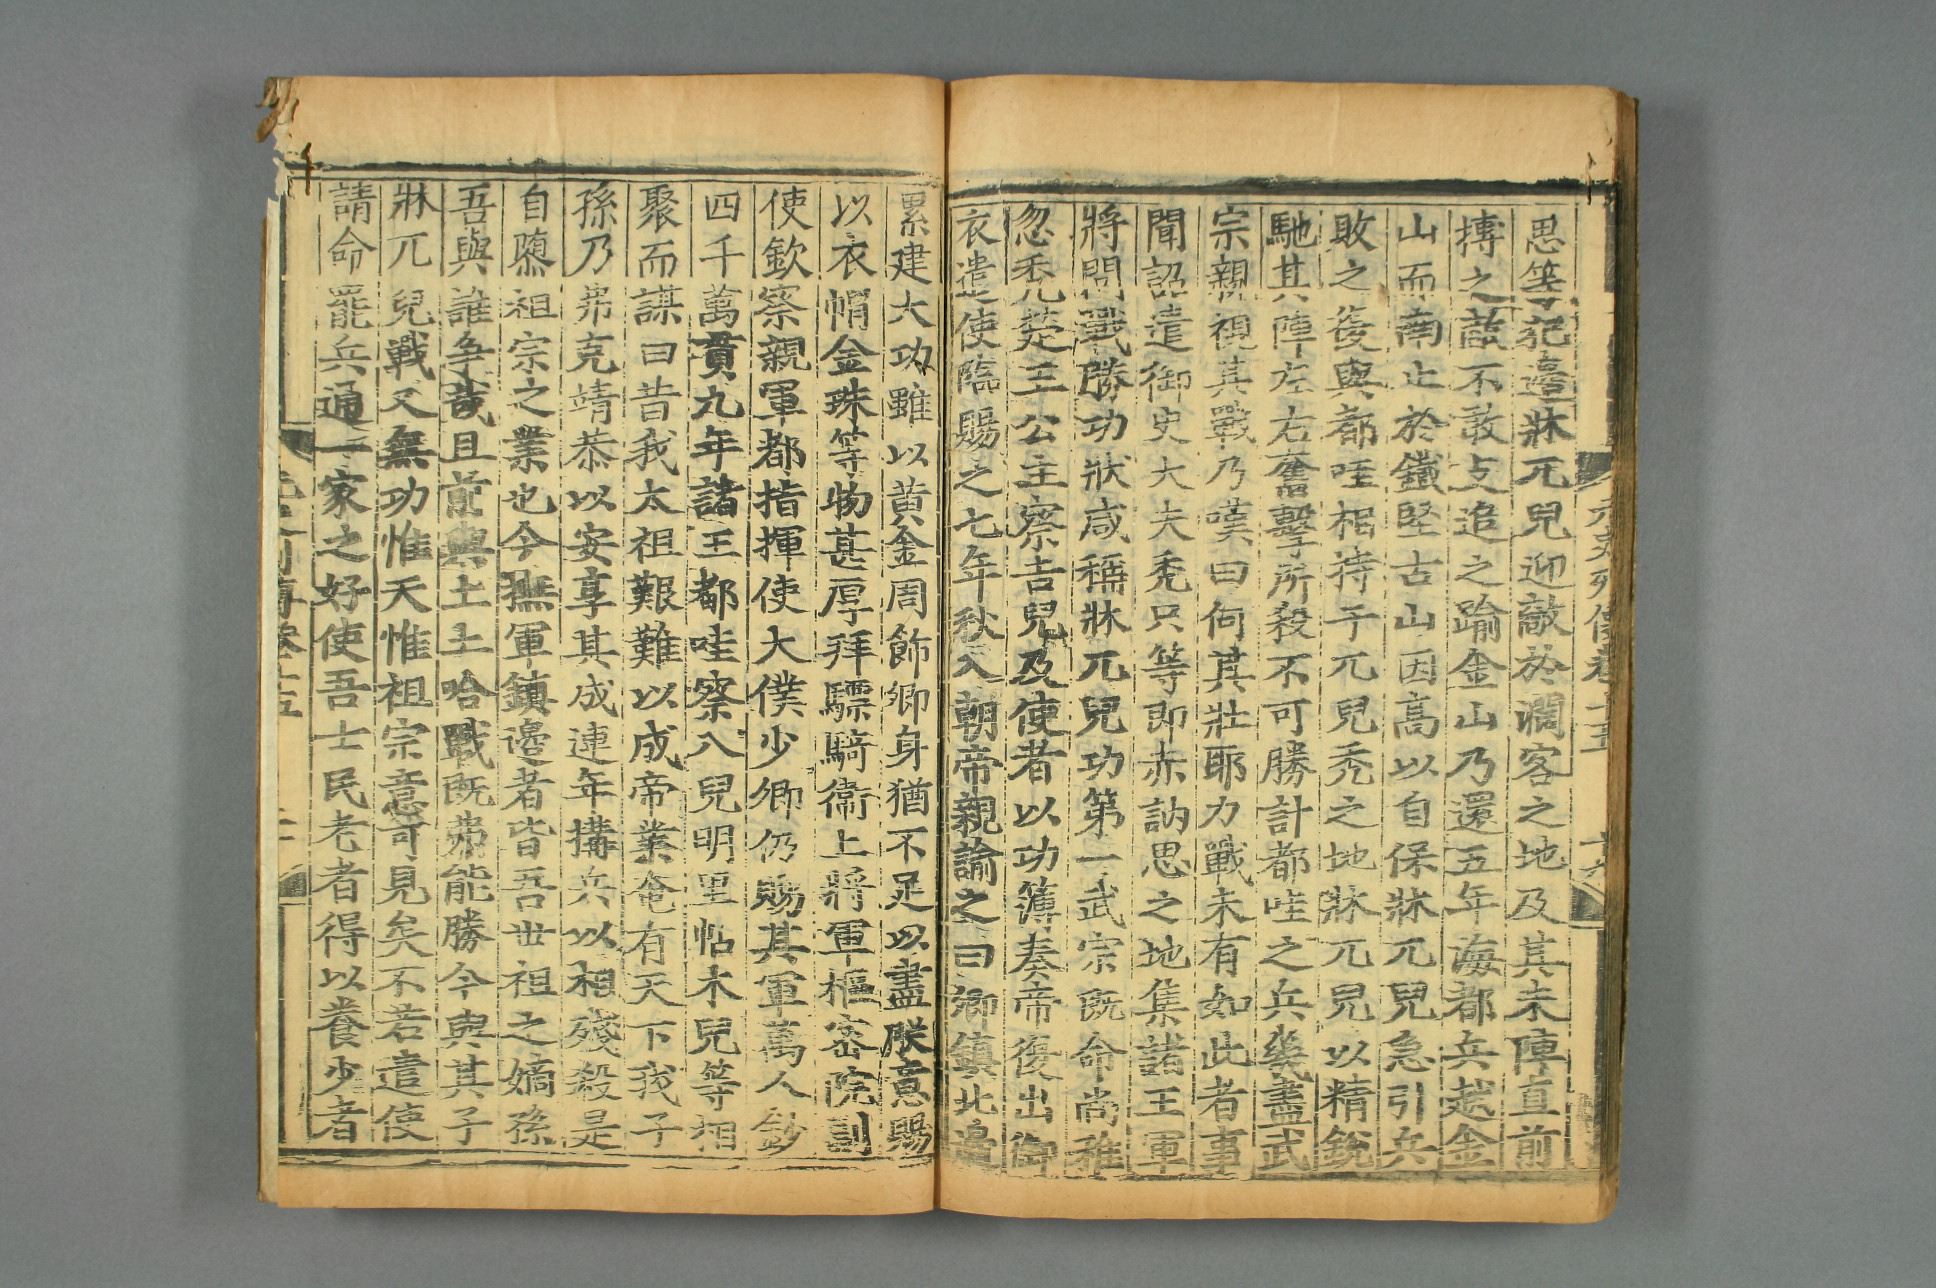 元史列傳卷十五
十六
思等犯邊牀兀兒迎敵於濶客之地及其未陣直前
搏之敵不敢支追之踰金山乃還五年海都兵越金
山而南止於鐵堅古山因高以自保牀兀兒急引兵
敗之復與都哇相持于兀兒禿之地牀兀兒以精銳
馳其陣左右奮擊所殺不可勝計都哇之兵幾盡武
宗親視其戰乃嘆曰何其壯耶力戰未有如此者事
聞詔遣御史大夫禿只等即赤訥思之地集諸王軍
將問戰勝功狀咸稱牀兀兒功第一武宗既命尚雅
忽禿楚王公主察吉兒及使者以功簿奏帝復出御
衣遣使臨賜之七年秋入朝帝親諭之曰卿鎮北邊
累建大功雖以黄金周飾卿身猶不足以盡朕意賜
以衣帽金珠等物甚厚拜驃騎衛上將軍樞宻院副
使欽察親軍都指揮使大僕少卿仍賜其軍萬人鈔
四千萬貫九年諸王都哇察八兒明里帖木兒等相
聚而謀曰昔我太祖艱難以成帝業奄有天下我子
孫乃弗克靖恭以安享其成連年搆兵以相殘殺是
自隳祖宗之業也今撫軍鎮邊者皆吾世祖之嫡孫
吾與誰争哉且前與土土哈戰既弗能勝今與其子
牀兀兒戰又無功惟天惟祖宗意可見矣不若遣使
請命罷兵通一家之好使吾士民老者得以養少者
元史列傳卷十五